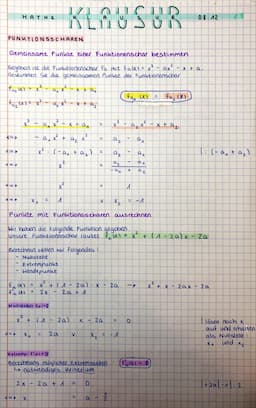 MATHE KLAUSUR 08.12
FUNKTIONSSCHAREN
Gemeinsame Punkte einer Funktionenschar bestimmen
Gegeben ist die Funktionenschar fa mit fa(x) = x³ - ax² - x + a.
Bestimmen Sie die gemeinsamen Punkte der Funktionenschar
fa₁(x) = x³ - a₁x² - x + a₁
fa₂(x) = x³ - a₂x² - x + a₂
fa₁(x) = fa₂(x)
x³ - a₁x² - x + a₁ = x³ - a₂x² - x + a₂
- a₁x² + a₂x² = a₂ - a₁
x² (-a₁ + a₂) = a₂ - a₁ |: (-a₁ + a₂)
x² = a₂ - a₁ / -a₁ + a₂
x² = 1
x₁ = 1 v x₂ = -1
Punkte mit Funktionsscharen ausrechnen
Wir haben die folgende Funktion gegeben
Unsere Funktionenschar lautet fa(x) = x² + (1 - 2a)x - 2a
Berechnet werden soll folgendes:
- Nullstelle
- Extrempunkte
- Wendepunkte
fa(x) = x² + (1 - 2a) x - 2a → x² + x - 2ax - 2a
x² + (1 - 2a) x - 2a = 0
x₁ = 2a v x₂ = -1
Löse nach x
auf und erhalten
als Nullstelle
x₁ und x₂
notwendiges Kriterium
2x - 2a + 1 = 0 |+2a |-1 |:2
x = a - ½